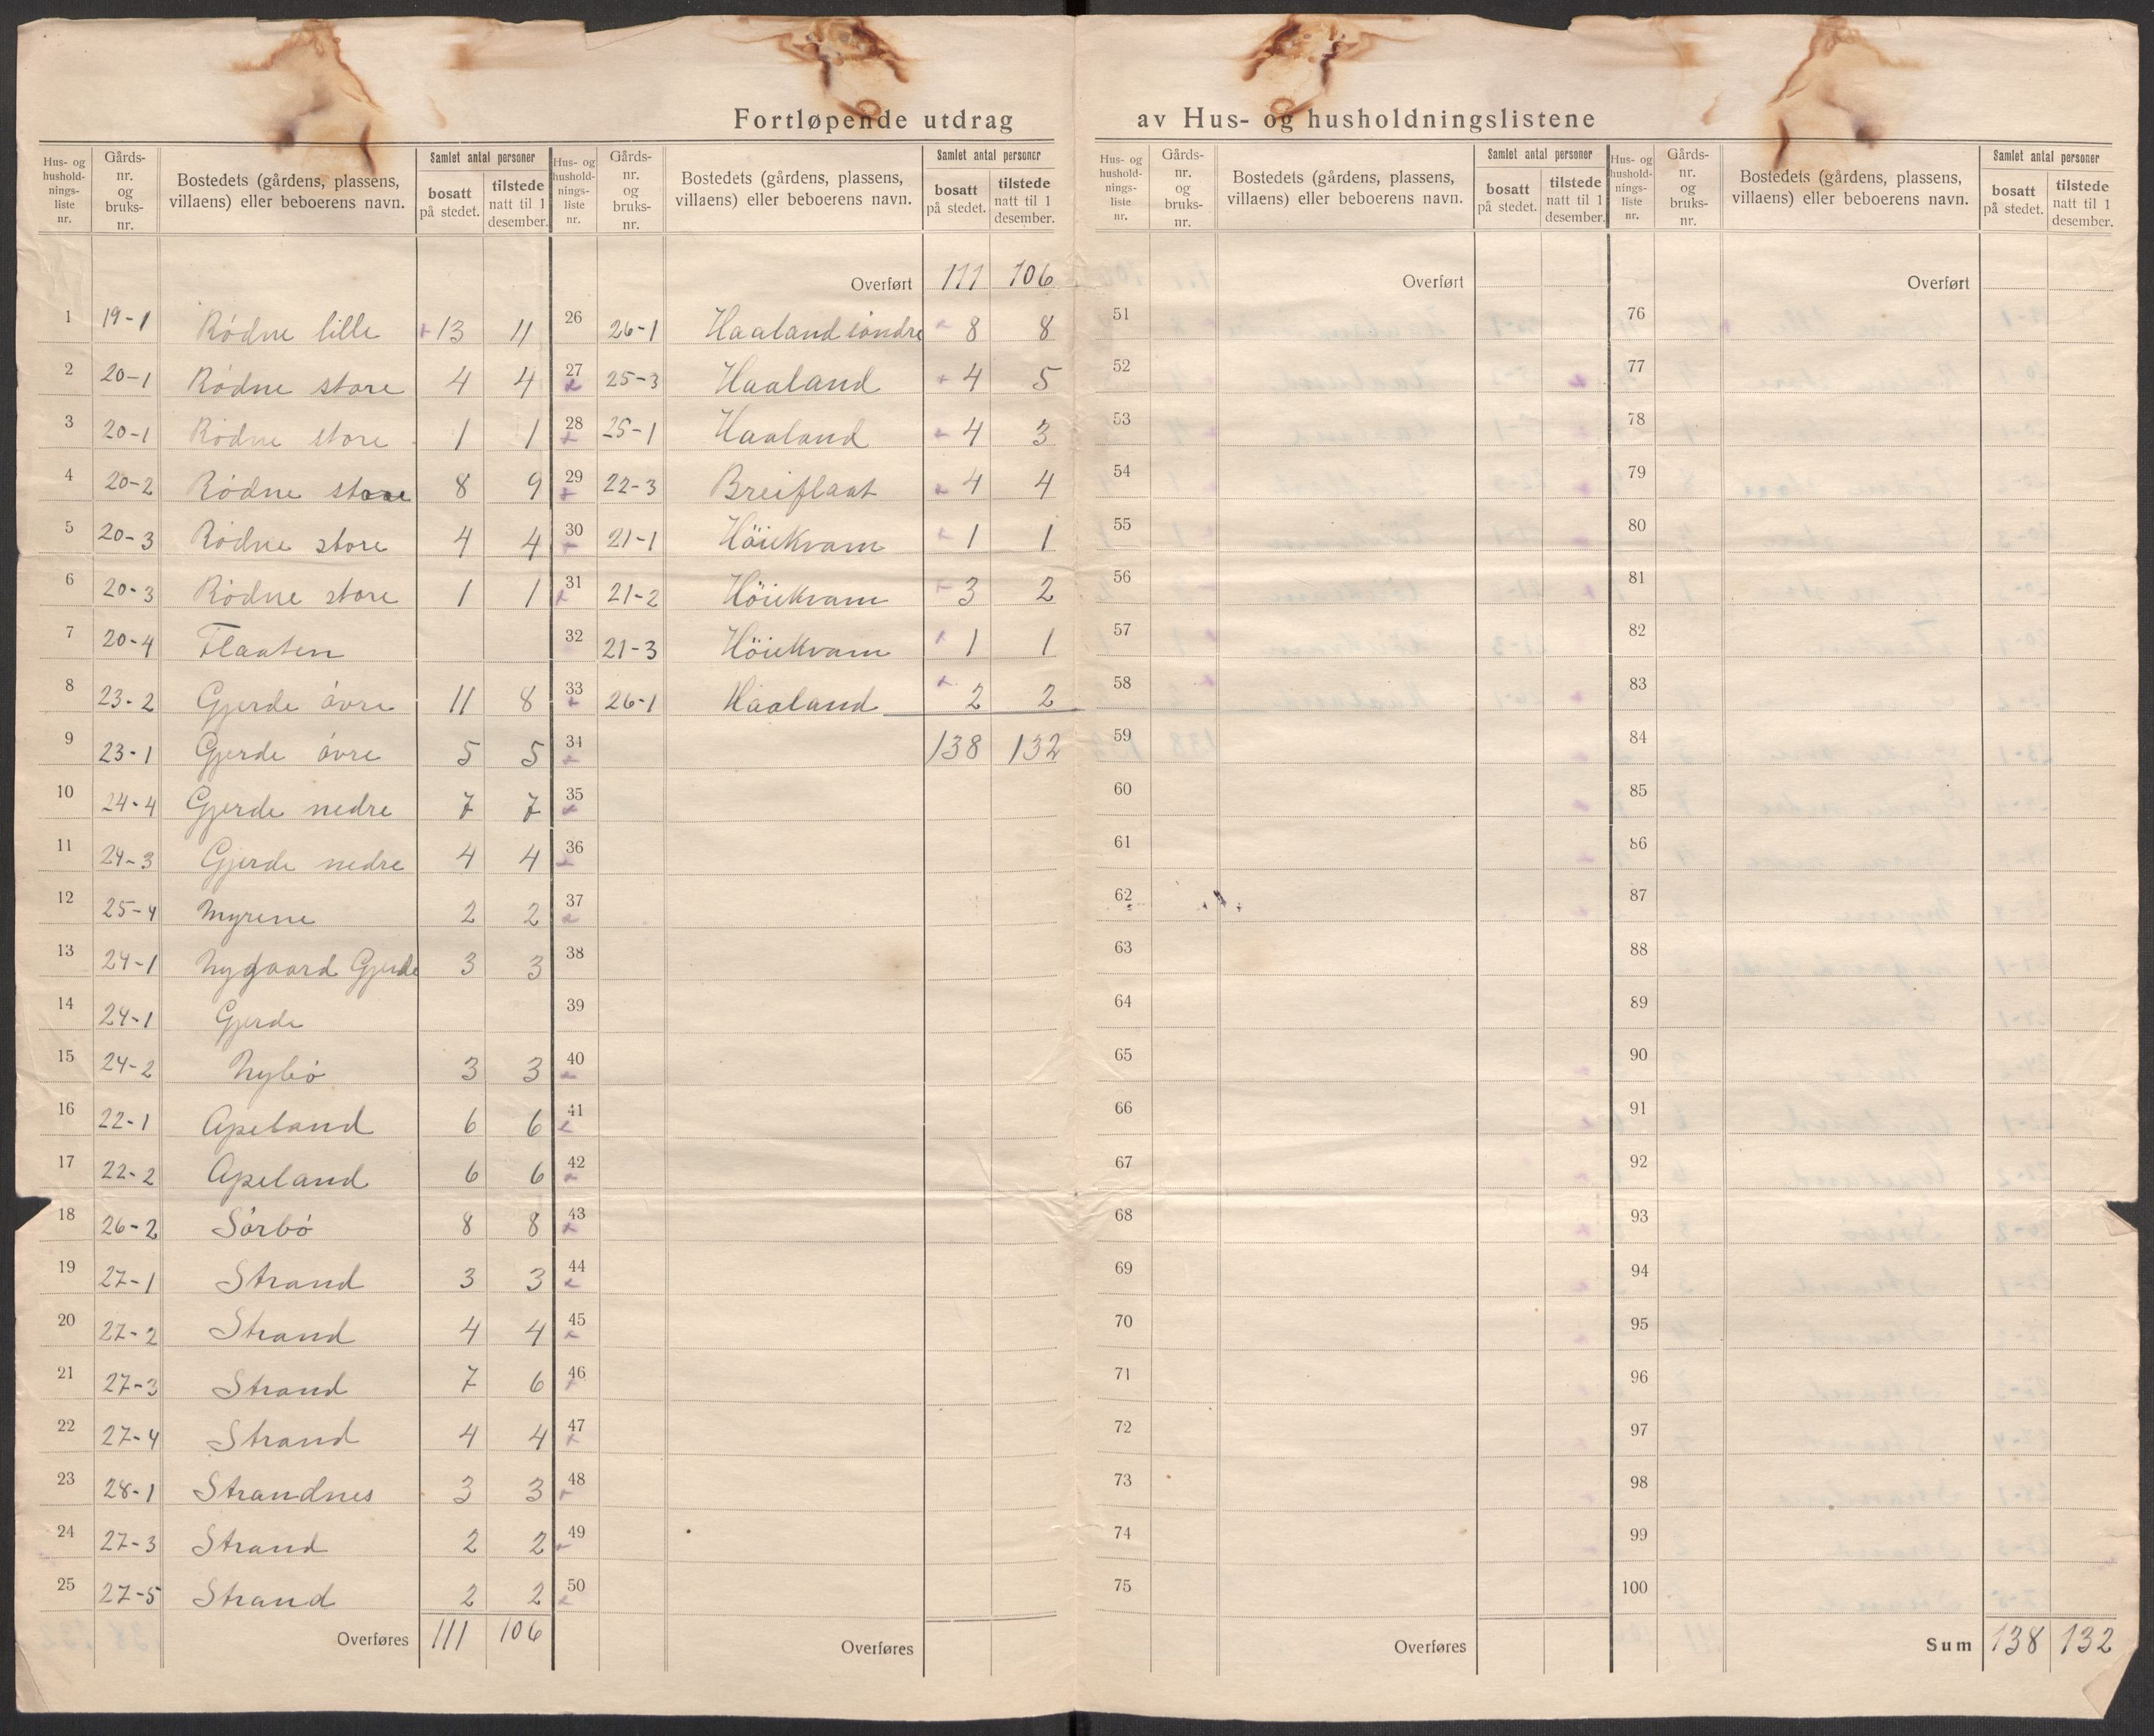 Fortløpende utdrag av Hus- og husholdningslistene
Hus- og husholdnings-liste nr. | Gårds-nr. og bruks-nr. | Bostedets (gårdens, plassens, villaens) eller beboerens navn. | Samlet antal personer | bosatt på stedet. | tilstede natt til 1 desember.
1 19-1 Rödne lille +13 11
2 20-1 Rödne store 4 4
3 20-1 Rödne store 1 1
4 20-2 Rödne store 8 9
5 20-3 Rödne store 4 4
6 20-3 Rödne store 1 1
7 20-4 Flaaten
8 23-2 Gjerde övre 11 8
9 23-1 Gjerde övre 5 5
10 24-4 Gjerde nedre 7 7
11 24-3 Gjerde nedre 4 4
12 25-4 Myrene 2 2
13 24-1 Nygaard Gjerde 3 3
14 24-1 Gjerde
15 24-2 Nybö 3 3
16 22-1 Apeland 6 6
17 22-2 Apeland 6 6
18 26-2 Sörbö 8 8
19 27-1 Strand 3 3
20 27-2 Strand 4 4
21 27-3 Strand 7 6
22 27-4 Strand 4 4
23 28-1 Strandnes 3 3
24 27-3 Strand 2 2
25 27-5 Strand 2 2
Overføres 111 106
Hus- og hushold-nings-liste nr. | Gårds-nr. og bruks-nr. | Bostedets (gårdens, plassens, villaens) eller beboerens navn. | Samlet antal personer | bosatt på stedet. | tilstede natt til 1 desember.
Overført 111 106
26 26-1 Haaland söndre + 8 8
27 25-3 Haaland + 4 5
28 25-1 Haaland + 4 3
29 22-3 Breiflaat + 4 4
30 21-1 Höiekvam + 1 1
31 21-2 Höiekvam + 3 2
32 21-3 Höiekvam + 1 1
33 26-1 Haaland + 2 2
34 138 132
35
36
37
38
39
40
41
42
43
44
45
46
47
48
49
50
Overføres
Hus- og hushold-nings-liste nr. | Gårds-nr. og bruks-nr. | Bostedets (gårdens, plassens, villaens) eller beboerens navn. | Samlet antal personer | bosatt på stedet. | tilstede natt til 1 desember.
Overført
51
52
53
54
55
56
57
58
59
60
61
62
63
64
65
66
67
68
69
70
71
72
73
74
75
Overføres
Hus- og hushold-nings-liste nr. | Gårds-nr. og bruks-nr. | Bostedets (gårdens, plassens, villaens) eller beboerens navn. | Samlet antal personer | bosatt på stedet. | tilstede natt til 1 desember.
Overført
76
77
78
79
80
81
82
83
84
85
86
87
88
89
90
91
92
93
94
95
96
97
98
99
100
Sum 138 132